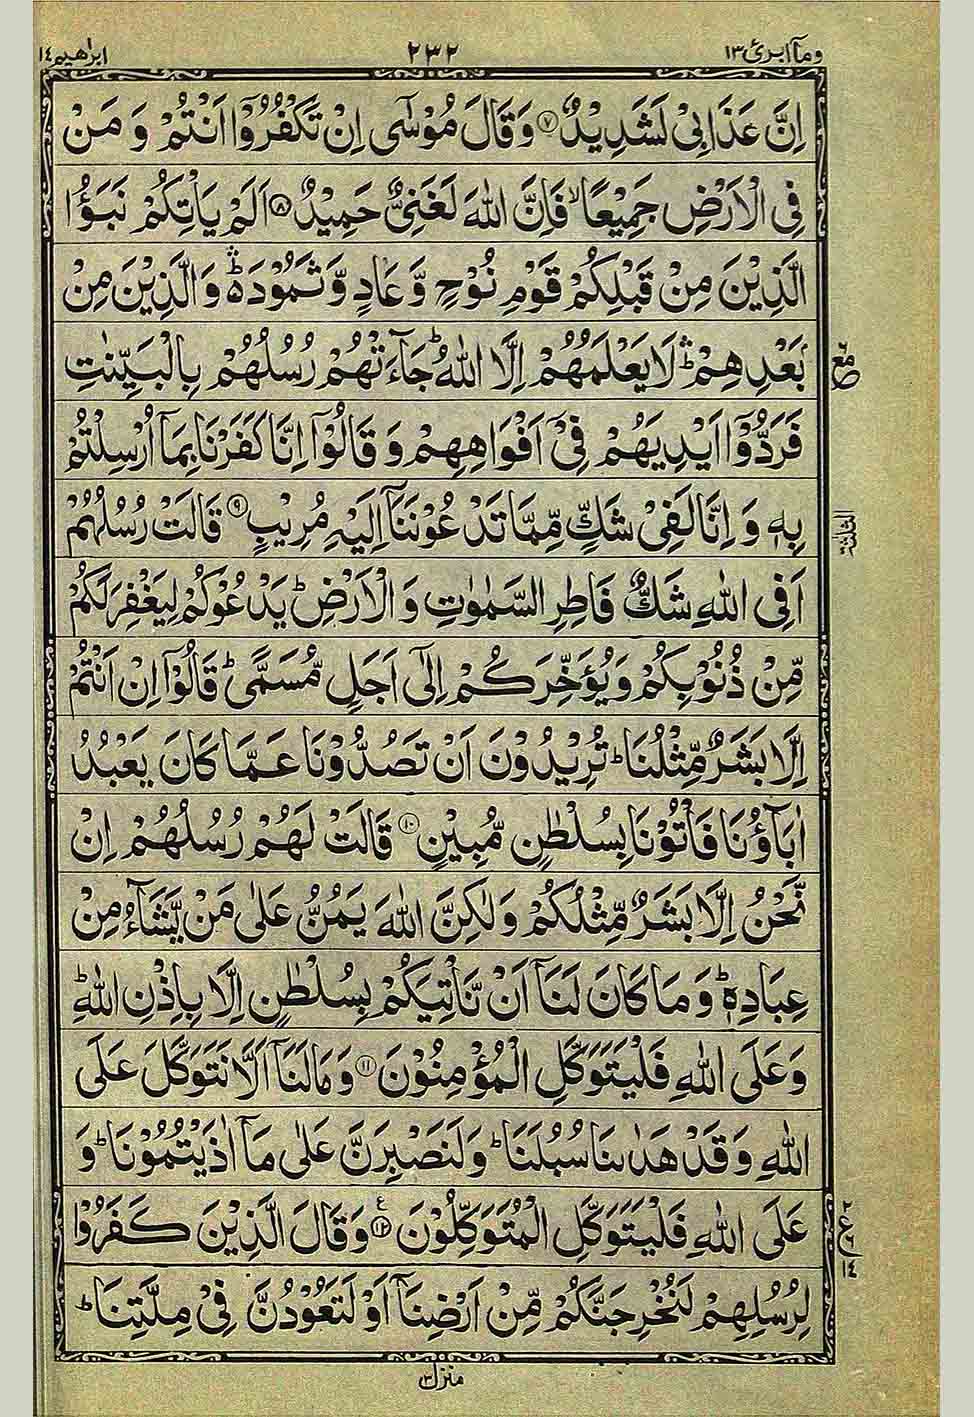 وما ابرئ ١٣
٢٣٢
ابرٰهيم ١٤
اِنَّ عَذَابِىْ لَشَدِيْدٌ ۝٧ وَقَالَ مُوْسٰٓى اِنْ تَكْفُرُوْٓا اَنْتُمْ وَ مَنْ
فِى الْاَرْضِ جَمِيْعًا ۙ فَاِنَّ اللّٰهَ لَغَنِىٌّ حَمِيْدٌ ۝٨ اَلَمْ يَاْتِكُمْ نَبَؤُا
الَّذِيْنَ مِنْ قَبْلِكُمْ قَوْمِ نُوْحٍ وَّعَادٍ وَّثَمُوْدَ ۛؕ وَالَّذِيْنَ مِنْ
بَعْدِهِمْ ۛؕ لَا يَعْلَمُهُمْ اِلَّا اللّٰهُ ؕ جَآءَتْهُمْ رُسُلُهُمْ بِالْبَيِّنٰتِ
مع
فَرَدُّوْٓا اَيْدِيَهُمْ فِىْٓ اَفْوَاهِهِمْ وَقَالُوْٓا اِنَّا كَفَرْنَا بِمَآ اُرْسِلْتُمْ
بِهٖ وَ اِنَّا لَفِىْ شَكٍّ مِّمَّا تَدْعُوْنَنَآ اِلَيْهِ مُرِيْبٍ ۝٩ قَالَتْ رُسُلُهُمْ
الثلثة
اَفِى اللّٰهِ شَكٌّ فَاطِرِ السَّمٰوٰتِ وَ الْاَرْضِ ؕ يَدْعُوْكُمْ لِيَغْفِرَ لَكُمْ
مِّنْ ذُنُوْبِكُمْ وَيُؤَخِّرَكُمْ اِلٰٓى اَجَلٍ مُّسَمًّى ؕ قَالُوْٓا اِنْ اَنْتُمْ
اِلَّا بَشَرٌ مِّثْلُنَا ؕ تُرِيْدُوْنَ اَنْ تَصُدُّوْنَا عَمَّا كَانَ يَعْبُدُ
اٰبَآؤُنَا فَاْتُوْنَا بِسُلْطٰنٍ مُّبِيْنٍ ۝١٠ قَالَتْ لَهُمْ رُسُلُهُمْ اِنْ
نَّحْنُ اِلَّا بَشَرٌ مِّثْلُكُمْ وَلٰكِنَّ اللّٰهَ يَمُنُّ عَلٰى مَنْ يَّشَآءُ مِنْ
عِبَادِهٖ ؕ وَمَا كَانَ لَنَآ اَنْ نَّاْتِيَكُمْ بِسُلْطٰنٍ اِلَّا بِاِذْنِ اللّٰهِ ؕ
وَعَلَى اللّٰهِ فَلْيَتَوَكَّلِ الْمُؤْمِنُوْنَ ۝١١ وَمَا لَنَآ اَلَّا نَتَوَكَّلَ عَلَى
اللّٰهِ وَقَدْ هَدٰىنَا سُبُلَنَا ؕ وَلَنَصْبِرَنَّ عَلٰى مَآ اٰذَيْتُمُوْنَا ؕ وَ
عَلَى اللّٰهِ فَلْيَتَوَكَّلِ الْمُتَوَكِّلُوْنَ ۝١٢ ع وَقَالَ الَّذِيْنَ كَفَرُوْا
٢ ع ٦ ١٤
لِرُسُلِهِمْ لَنُخْرِجَنَّكُمْ مِّنْ اَرْضِنَآ اَوْ لَتَعُوْدُنَّ فِىْ مِلَّتِنَا ؕ
منزل ٣